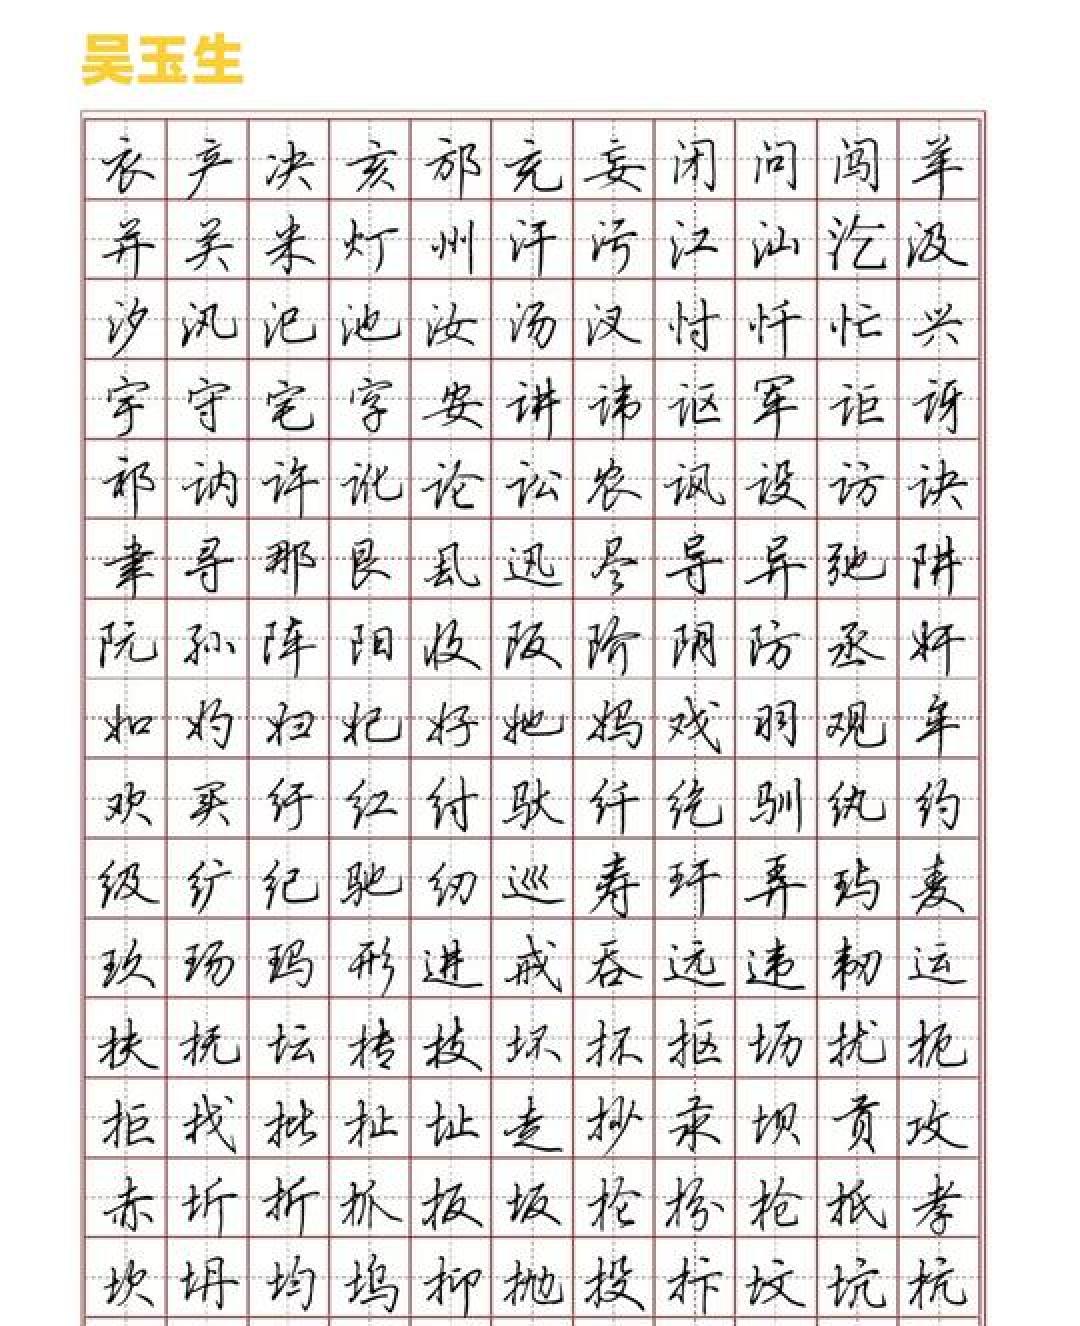 吴玉生
衣产决亥邡充妄闭问闯羊
并关米灯州汗污江汕汔汲
汐汛汜池汝汤汊忖忏忙兴
宇守宅字安讲讳讴军讵讶
祁讷许讹论讼农讽设访诀
聿寻那艮厾迅尽导异弛阱
阮孙阵阳收阪阶阴防丞奸
如妁妇妃好她妈戏羽观牟
欢买纡红纣驮纤纥驯纨约
级纩纪驰纫巡寿玕弄玙麦
玖玚玛形进戒吞远违韧运
扶抚坛抟技坏抔抠坜扰扼
拒找批扯址走抄汞坝贡攻
赤圻折抓扳坂抡扮抢抵孝
坎坍均坞抑抛投抃坟坑抗